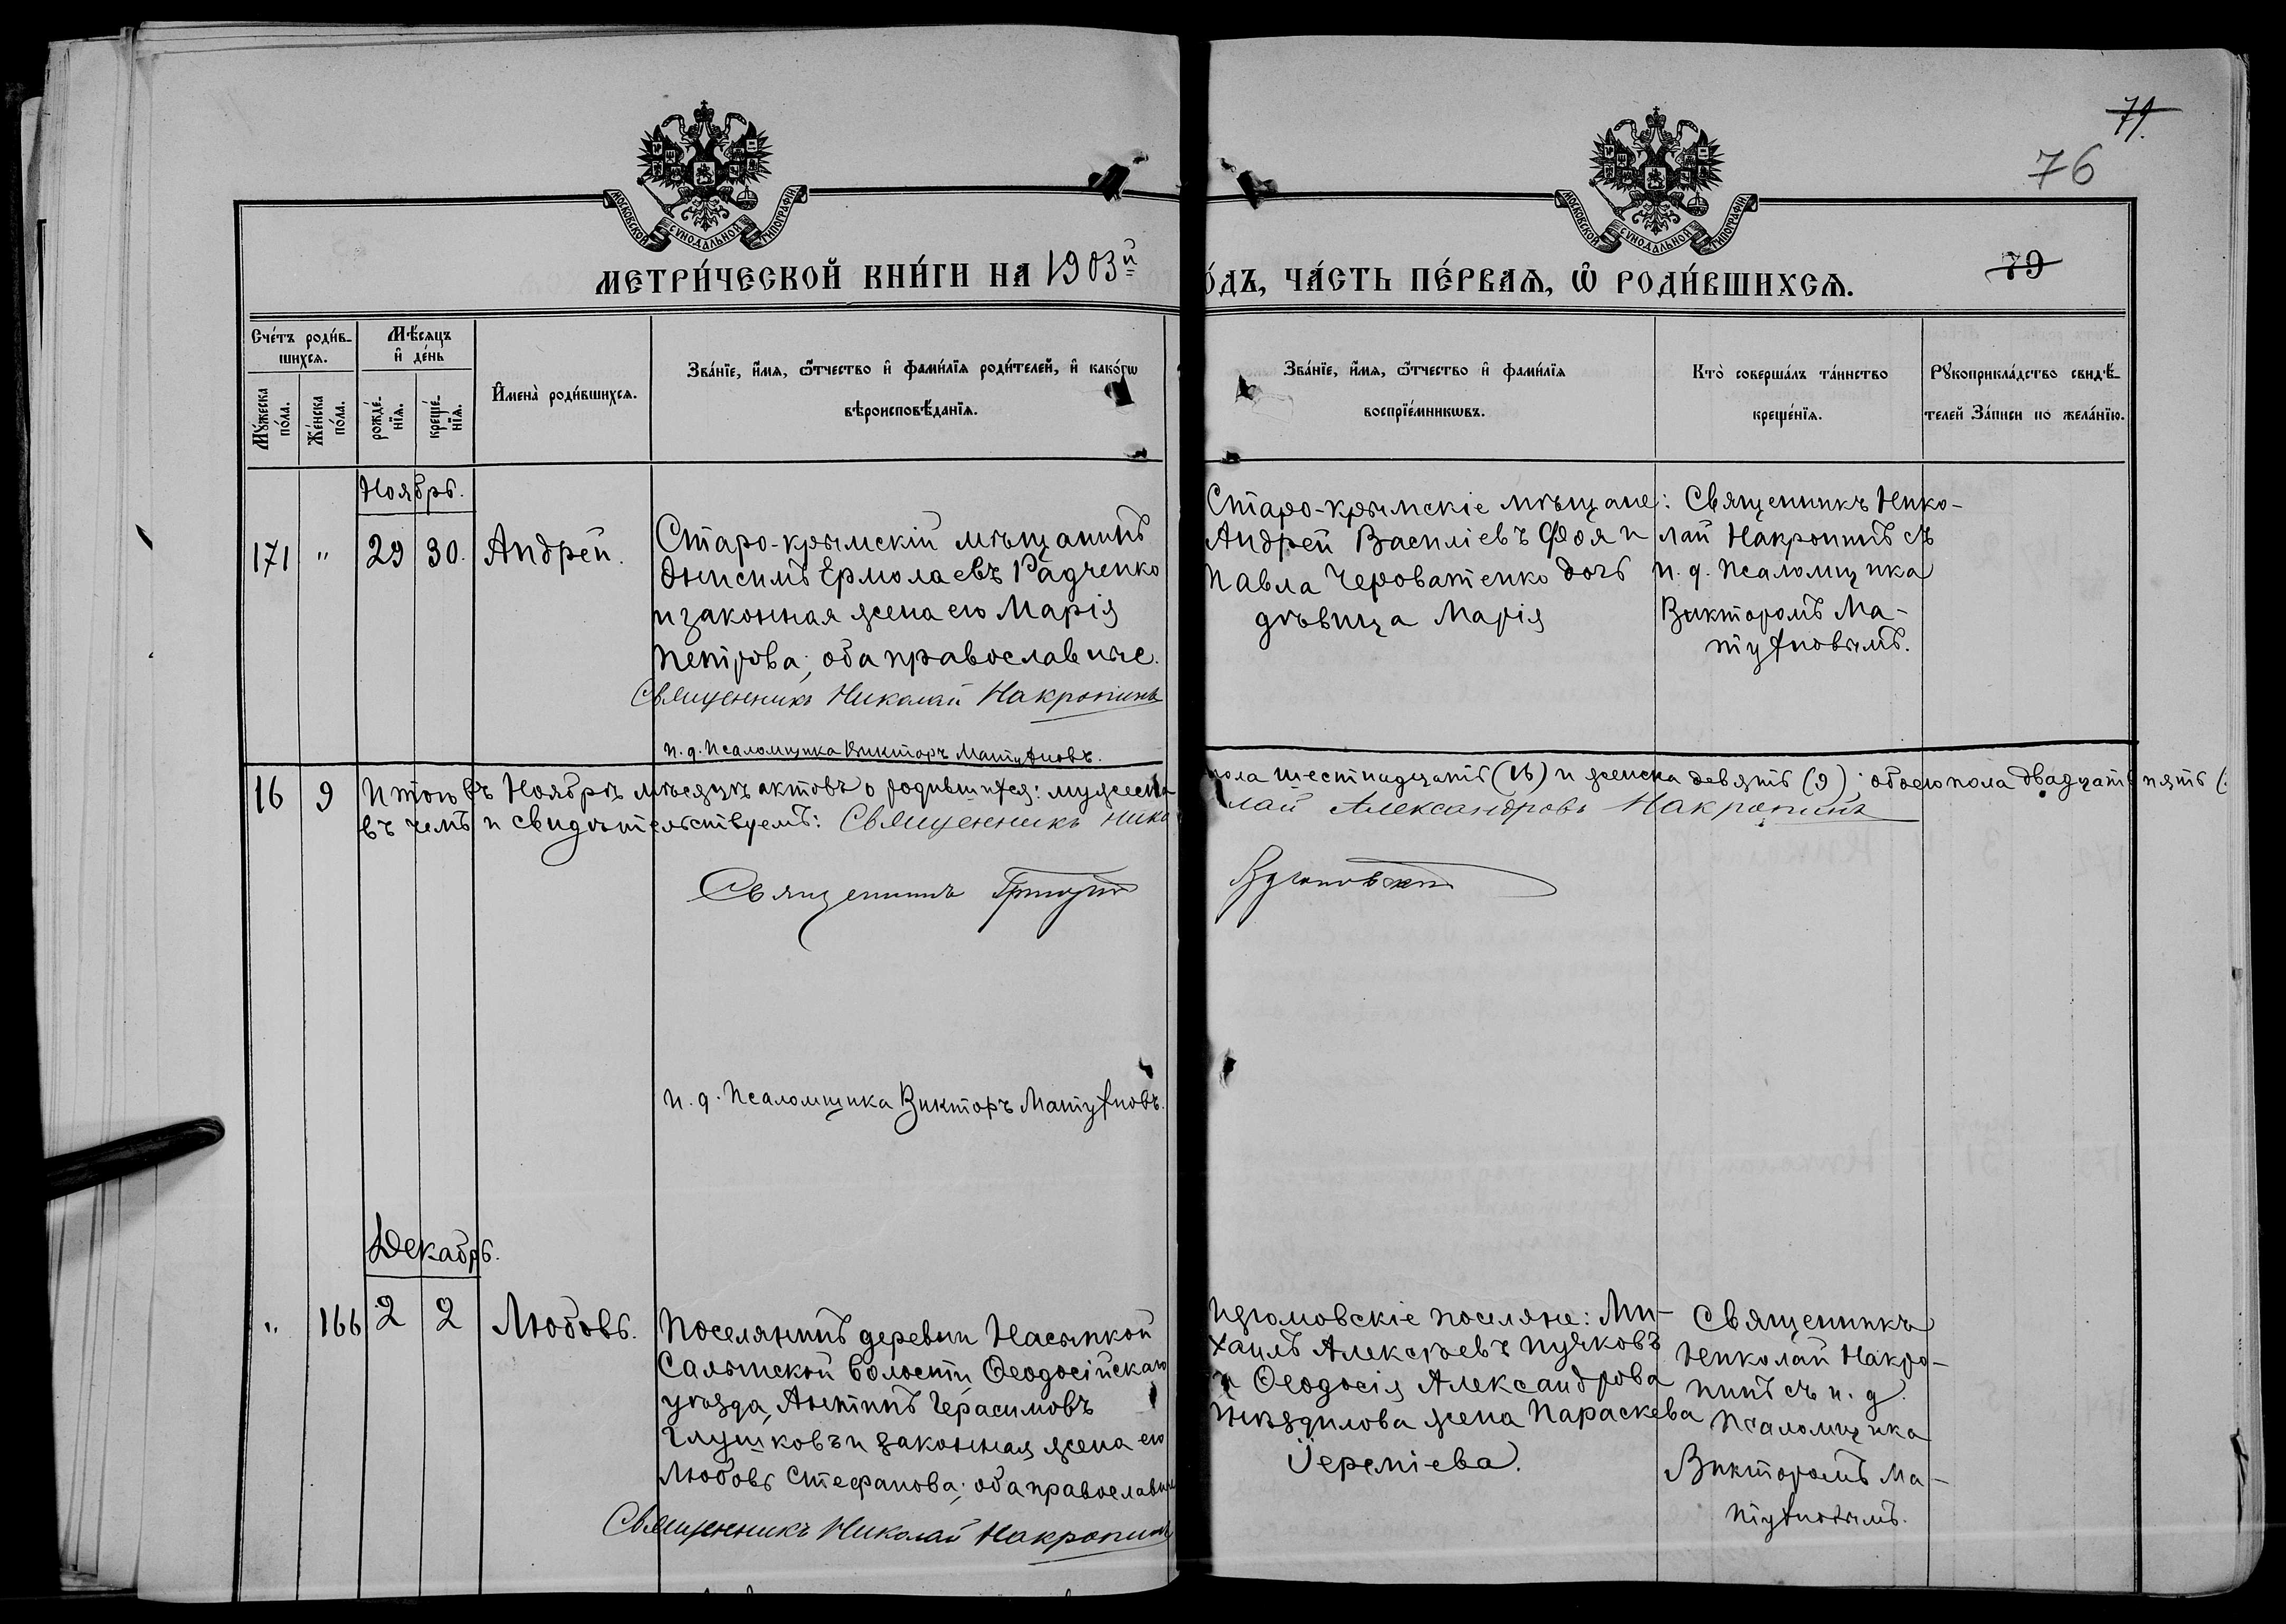 МОСКОВСКОЙ СУНОДАЛЬНОЙ ТИПОГРАФІИ
МОСКОВСКОЙ СУНОДАЛЬНОЙ ТИПОГРАФІИ
79.
76
79
МЕТРИ́ЧЕСКОЙ КНИ́ГИ НА 1903й
О́ДЪ, ЧА́СТЬ ПЕ́РВАѦ, Ѡ҆ РОДИ́ВШИХСѦ.
Сче́тъ роди́в-
шихся.
Мѣ́сяцъ
и҆ де́нь
Мꙋ́жеска
по́ла.
Же́нска
по́ла.
рожде́-
нїя.
креще́-
нїя.
И҆мена̀ роди́вшихся.
Зва́нїе, и҆́мя, ѻ҆́тчество и҆ фами́лїя роди́телей, и҆ како́гѡ
вѣроисповѣ́данїя.
Зва́нїе, и҆́мя, ѻ҆́тчество и҆ фами́лїя
воспрїе́мникѡвъ.
Кто̀ соверша́лъ та́инство
креще́нїя.
Рꙋкоприкла́дство свидѣ́-
телей За́писи по жела́нїю.
Ноябрь.
171 " 29 30. Андрей.
Старо-крымскій мѣщанинъ
Онисимъ Ермолаевъ Радченко
и законная жена его Марія
Петрова; оба православные.
Священникъ Николай Накропинъ
и. д. Псаломщика Викторъ Матухновъ.
Старо-крымскіе мѣщане:
Андрей Василіевъ Фоя и
Павла Череватенко дочь
дѣвица Марія
Священникъ Нико-
лай Накропинъ съ
и. д. Псаломщика
Викторомъ Ма-
тухновымъ.
16 9 Итого въ Ноябрѣ мѣсяцѣ актовъ о родившихся: мужеска пола шестнадцать (16) и женска девять (9); обоего пола двадцать пять (
въ чемъ и свидѣтельствуемъ: Священникъ Николай Александровъ Накропинъ
Священникъ Григорій
и. д. Псаломщика Викторъ Матухновъ.
Декабрь.
" 166 2 2 Любовь.
Поселянинъ деревни Насыпкой
Салынской волости, Ѳеодосійскаго
уѣзда, Антипъ Герасимовъ
Глушковъ и законная жена его
Любовь Стефанова; оба православные
Священникъ Николай Накропинъ
Изюмовскіе поселяне: Ми-
хаилъ Алексѣевъ Пучковъ
и Ѳеодосія Александрова
Гнѣздилова жена Параскева
Іереміева.
Священникъ
Николай Накро-
пинъ съ и. д.
Псаломщика
Викторомъ Ма-
тухновымъ.